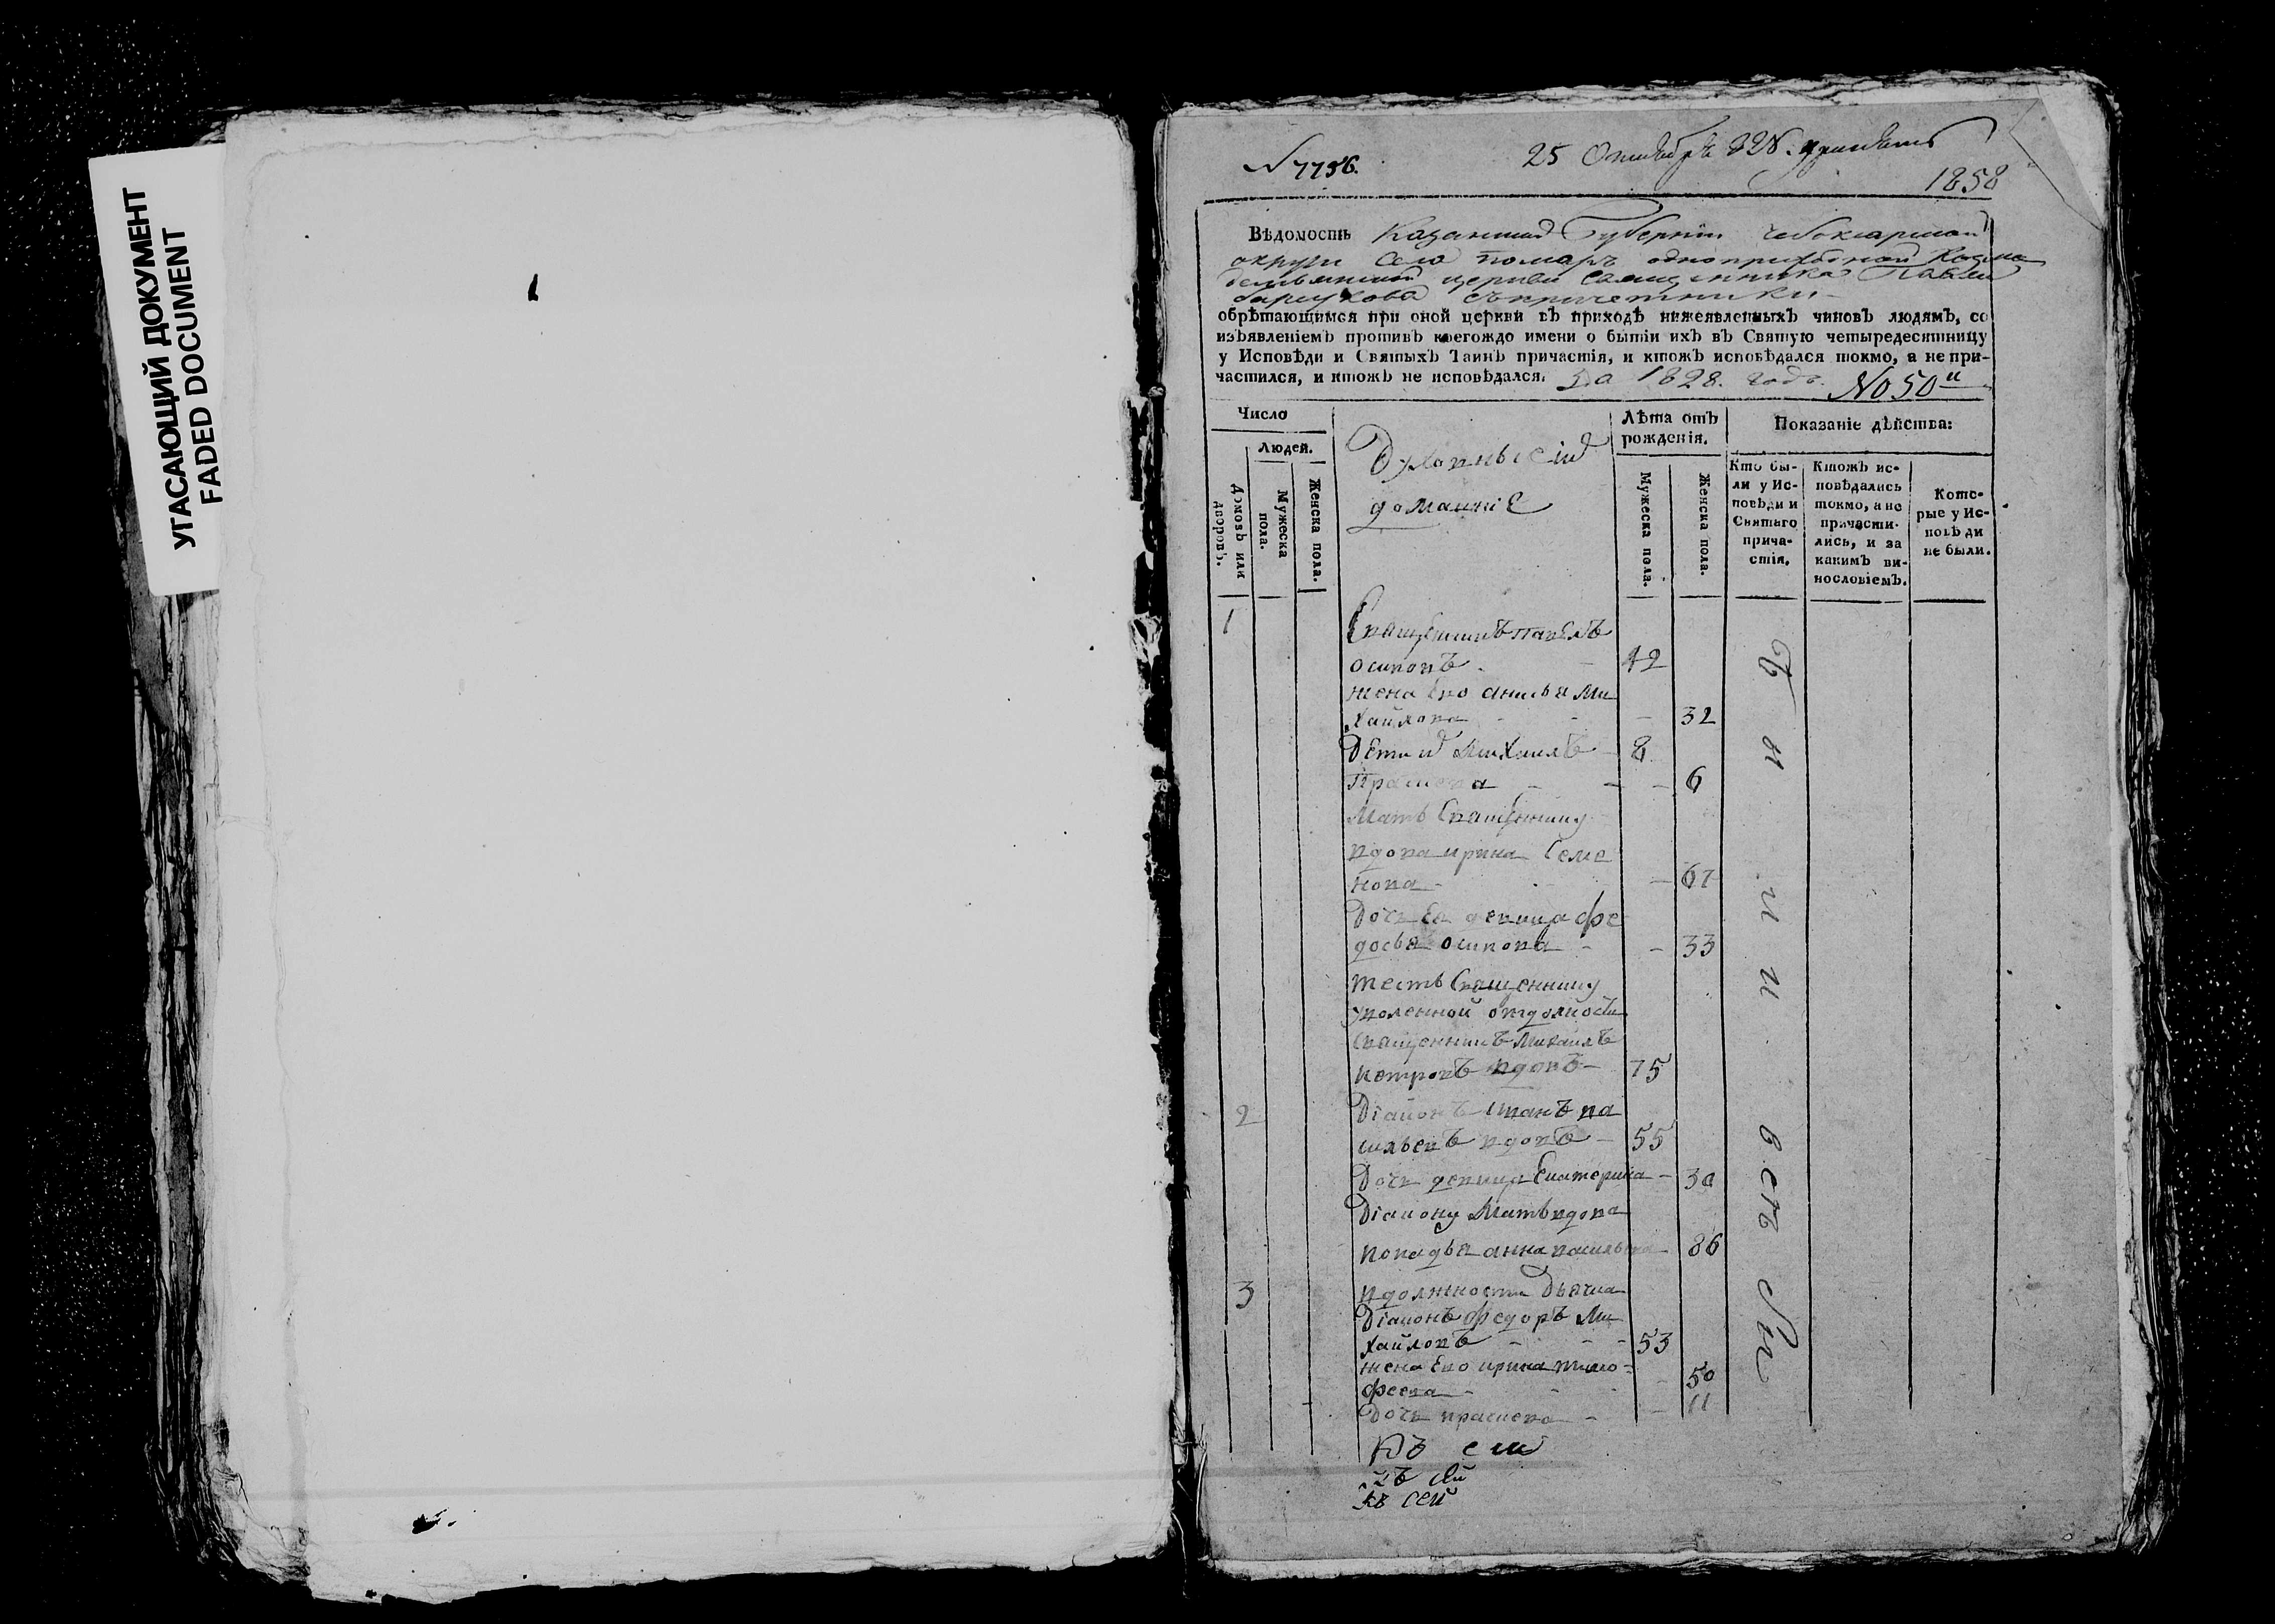 УГАСАЮЩИЙ ДОКУМЕНТ
FADED DOCUMENT
N 7756.
25 Октября 828.
1858
Вѣдомость Казанской Губерніи Чебоксарской
округи Села Помаръ одноприходной Козмо
демьянской церкви Священника Павла
съ причетники
обрѣтающимся при оной церкви въ приходѣ нижеявленныхъ чиновъ людямъ, со
изъявленіемъ противъ коегождо имени о бытіи ихъ въ Святую четыредесятницу
у Исповѣди и Святыхъ Таинъ причастія, и ктожъ исповѣдался токмо, а не при-
частился, и ктожъ не исповѣдался. За 1828. годъ. No 50й
Число
Людей.
Домовъ или дворовъ.
Мужеска пола.
Женска пола.
Духовныеи
домашніе
Лѣта отъ
рожденія.
Мужеска пола.
Женска пола.
Показаніе дѣйства:
Кто бы-
ли у Ис-
повѣди и
Святаго
прича-
стія.
Ктожъ ис-
повѣдались
токмо, а не
причасти-
лись, и за
какимъ ви-
нословіемъ.
Кото-
рые у Ис-
повѣди
не были.
1 Священникъ Павелъ
осиповъ 42
жена Его анисья Ми
хайлова 32
Дети и Михаилъ 8
Прасковa 6
Мать Священнику
вдова ирина Семе
нова 67
Дочь Ея девица фе
досья осипова 33
тесть Священнику
уволенной отдолности
Священникъ Михаилъ
петровъ вдовъ 75
2 Діаконъ Иванъ ва
сильевъ вдовъ 55
Дочь девица Екатерина 30
Діакону Мать вдова
попадья анна васильева 86
3 вдолжности Дьячка
Діаконъ федоръ Ми
хайловъ 53
жена Его ирина тимо-
феева 50
Дочь прасковa 11
Къ сей
Къ сей